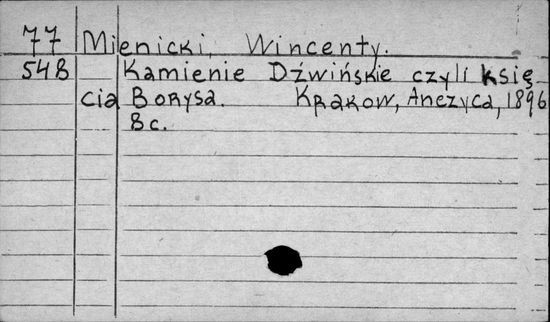 77 Mienicki, Wincenty.
54B Kamienie Dźwińskie czyli księ
cia Borysa. Krakow, Anczyca, 1896
8c.